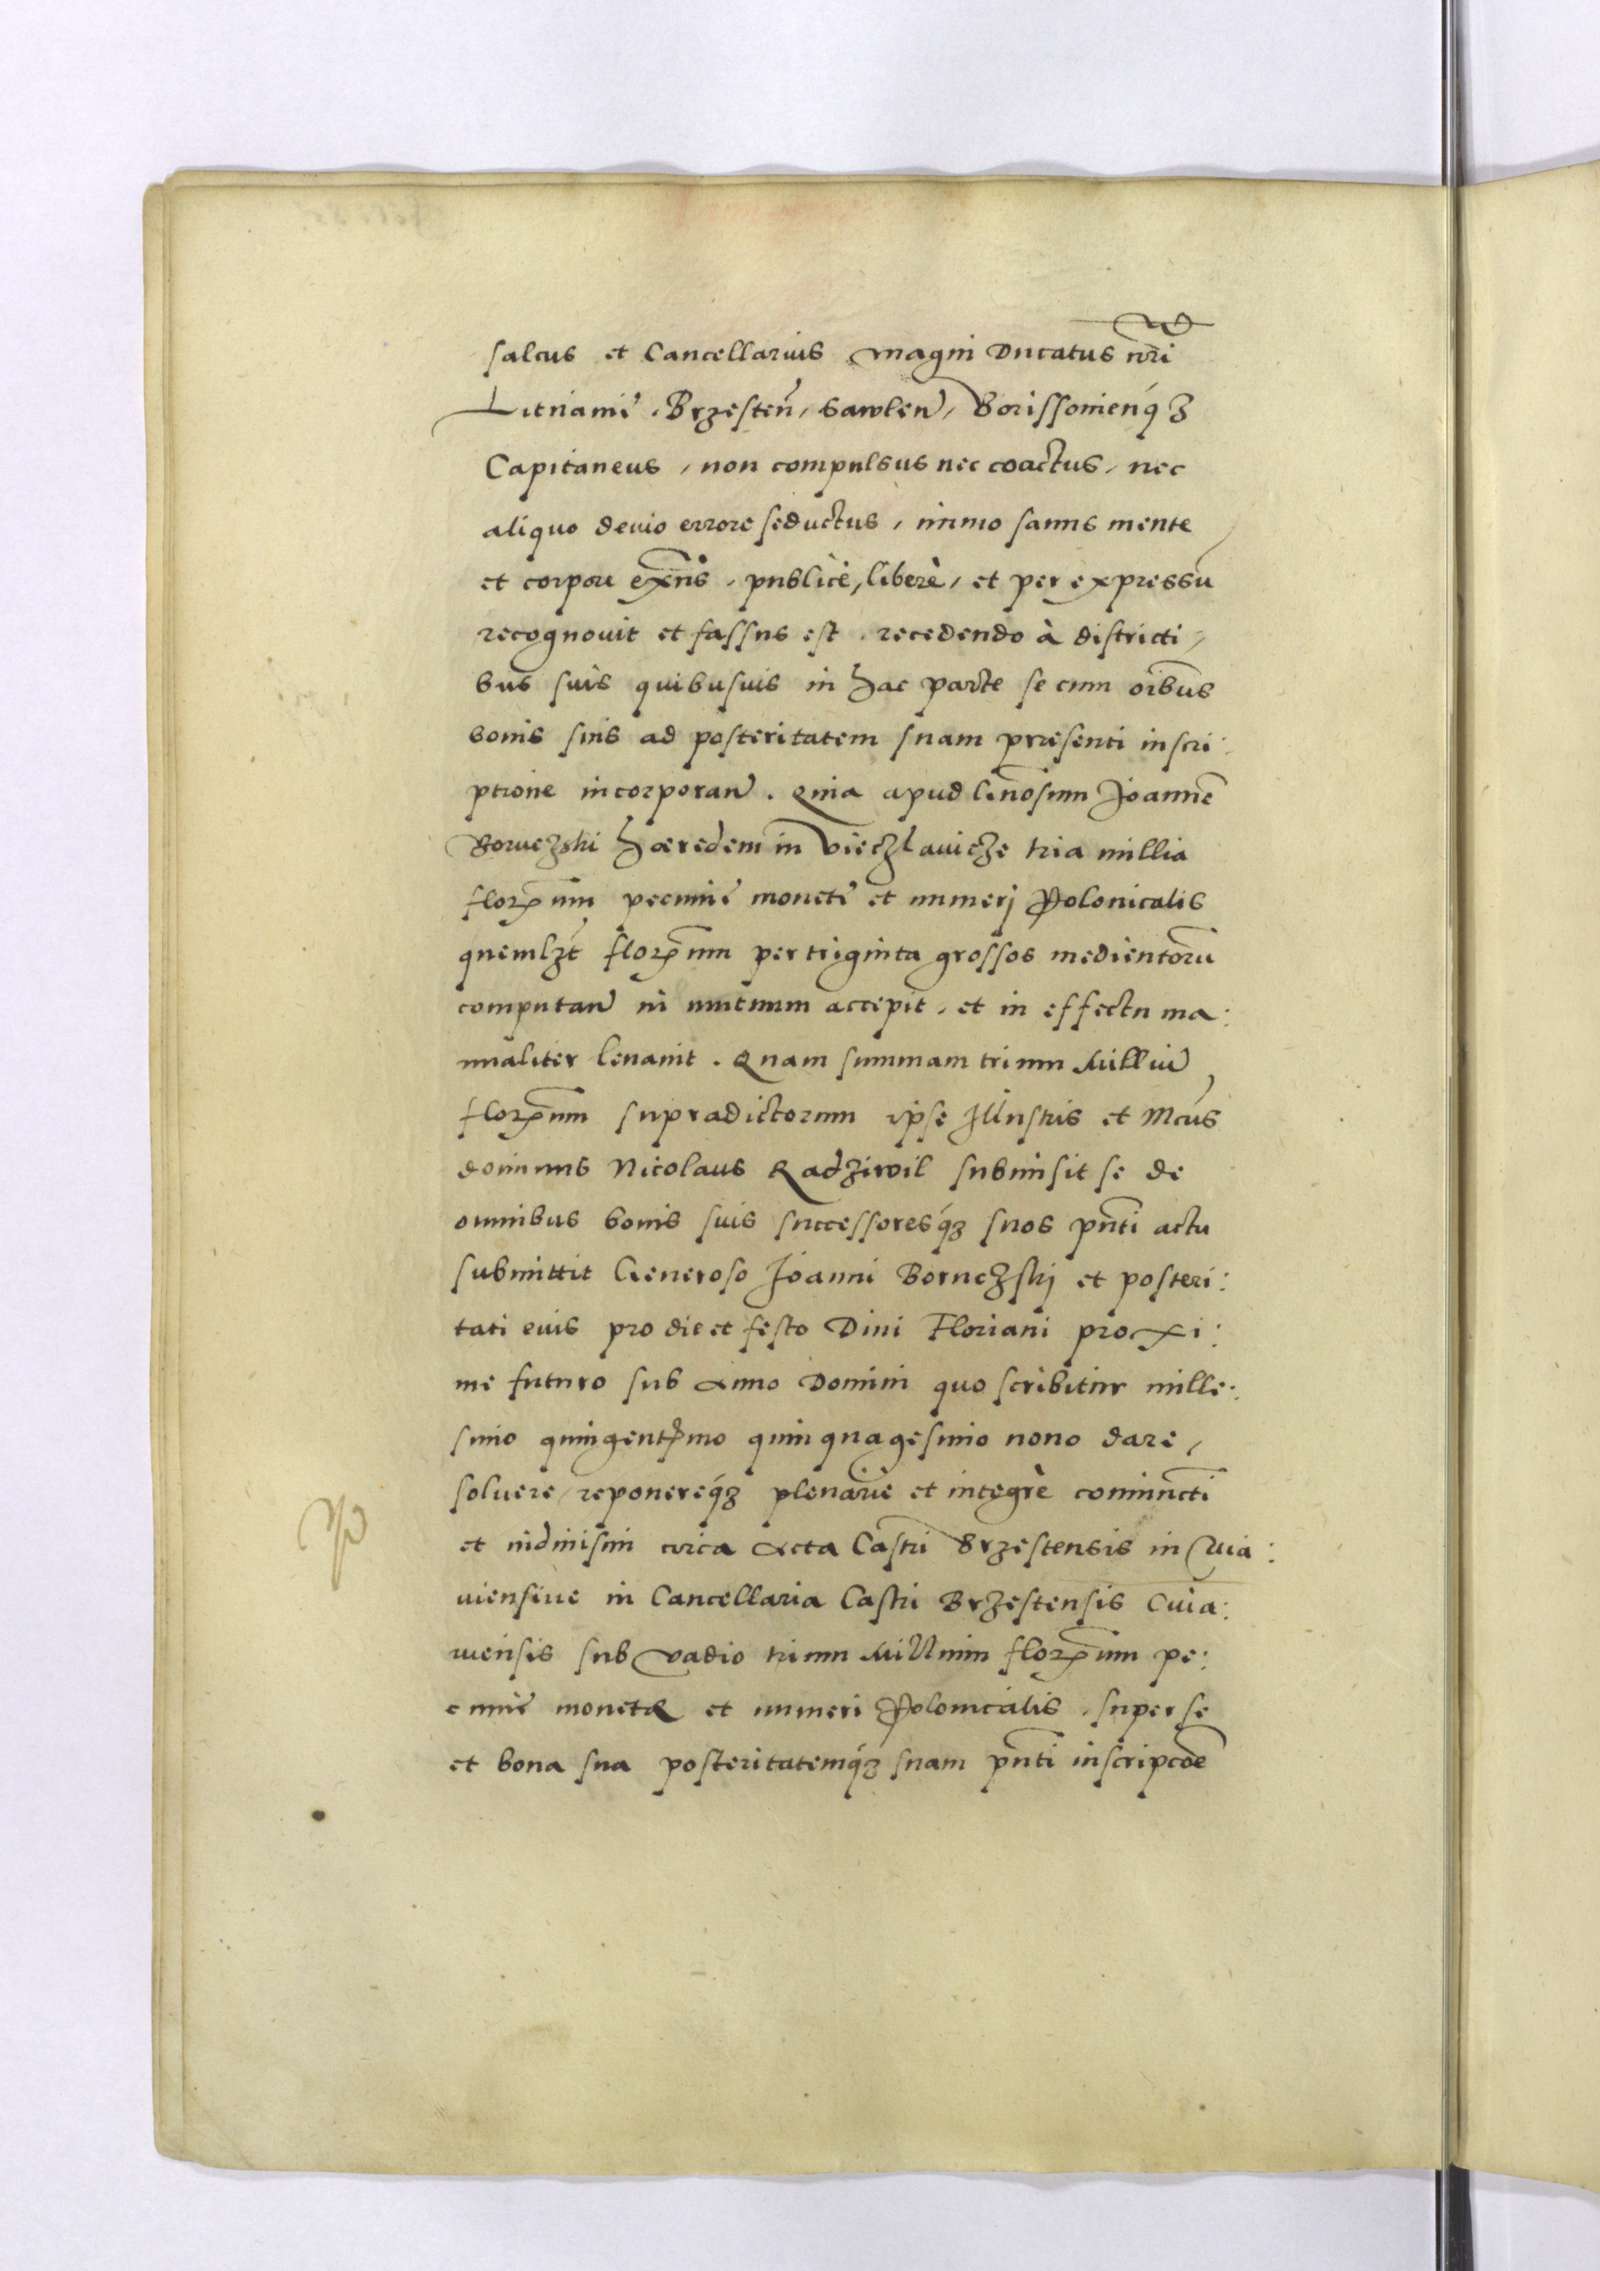 salcus et Cancellarius magni Ducatus nr̃i
Lituaniẽ, Brzesteñ, Sawleñ, Borissonienq́ꝫ
Capitaneus, non compulsus nec coactus, nec
aliquo deuio errore seductus, immo sanus mente
et corpore exñs, publicè, liberè, et per expressũ
recognouit et fassus est, recedendo à districti,
bus suis quibusuis in hac parte se cum oĩbus
bonis suis ad posteritatem suam præsenti inscri:
ptione incorporañ. Quia apud Gñosum Joannẽ
Boruczski hæredem in Vieczlauicze tria millia
florẽnum pecuniẽ monetẽ et numerj Polonicalis
quemlꝫt florẽnum per triginta grossos medientorũ
computañ in mutuum accepit, et in effectu ma:
nualiter leuauit. Quam summam trium Milliũ
florẽnum supradictorum ipse Illustris et Mcũs
dominus Nicolaus Radziwil submisit se de
omnibus bonis suis successoresq́ꝫ suos pñti actu
submittit Generoso Joanni Boruczskj et posteri:
tati euis pro die et festo Diui Floriani proxi:
me futuro sub Anno Domini quo scribitur mille:
simo quingent.mo quinquagesimo nono dare,
soluere, reponereq́ꝫ plenariè et integrè coniunctĩ
et indiuisim circa Acta Castri Brzestensis in Cuia:
uien siue in Cancellaria Castri Brzestensis Cuia:
uiensis sub vadio trium Millium florẽnum pe:
cuniẽ monetæ et numeri Polonicalis, super se
et bona sua posteritatemq́ꝫ suam pñti inscripcõe